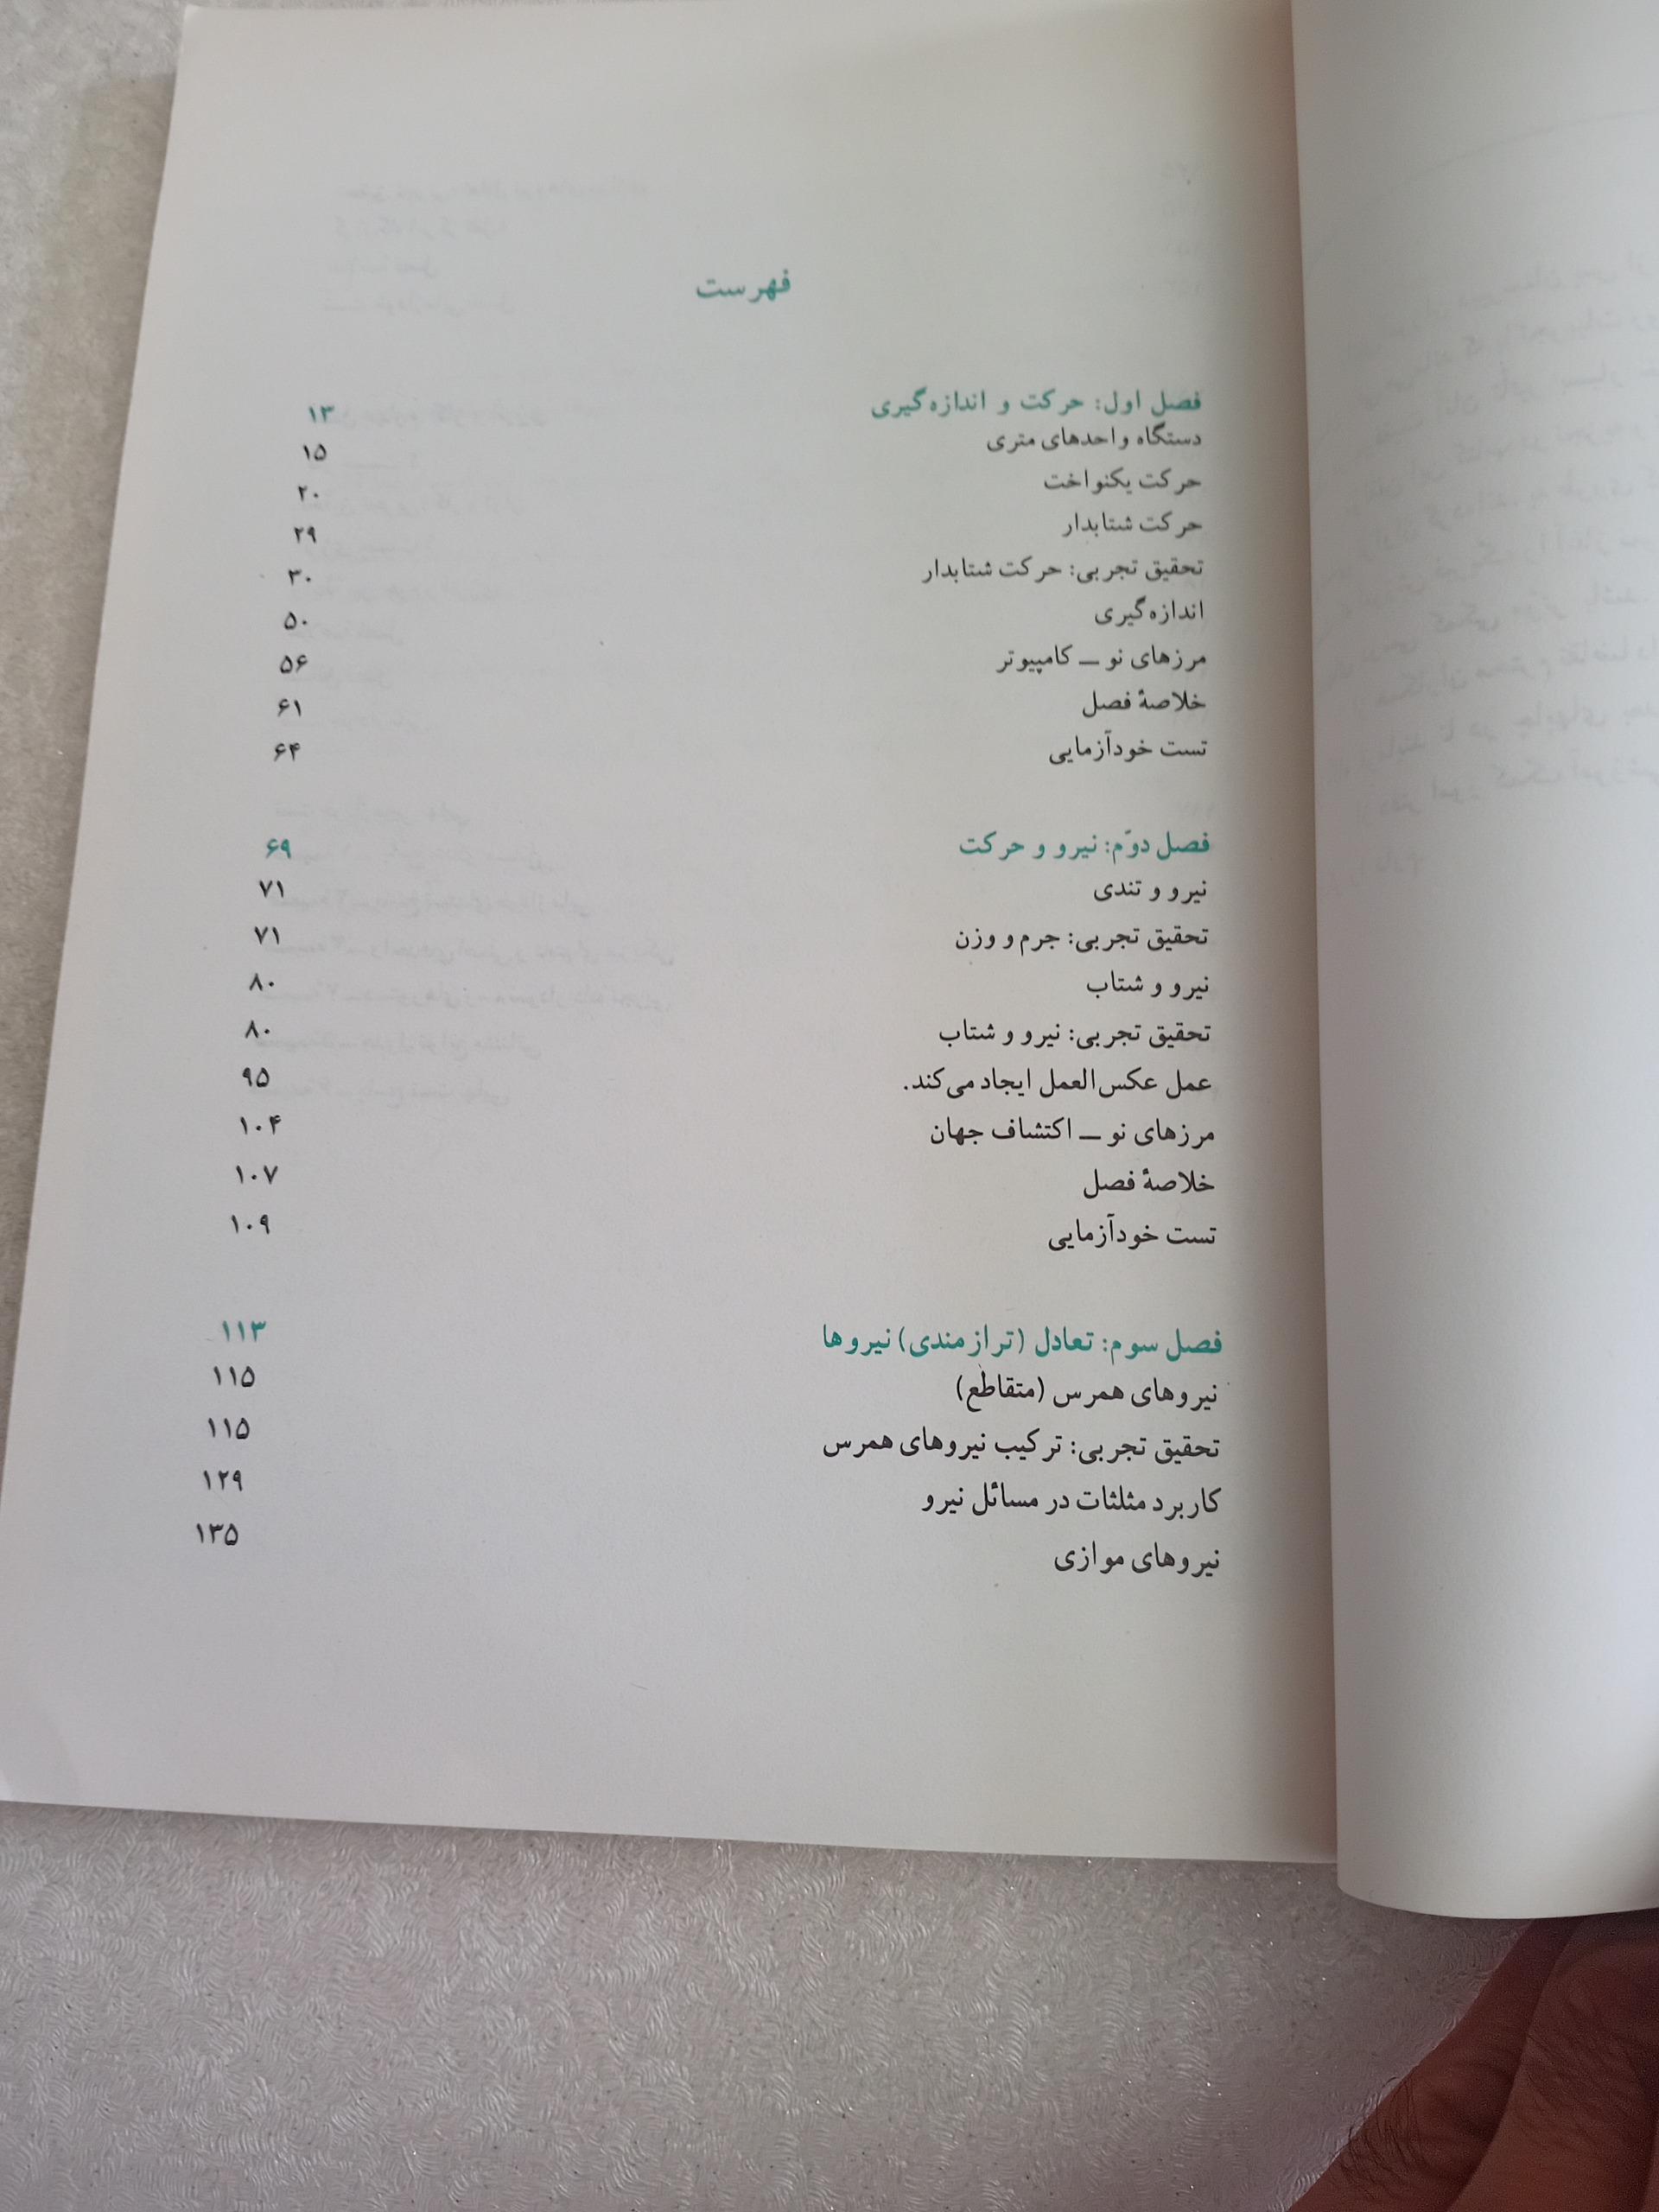 فهرست
فصل اول: حرکت و اندازه‌گیری ۱۳
دستگاه واحدهای متری ۱۵
حرکت یکنواخت ۲۰
حرکت شتابدار ۲۹
تحقیق تجربی: حرکت شتابدار ۳۰
اندازه‌گیری ۵۰
مرزهای نو ــ کامپیوتر ۵۶
خلاصهٔ فصل ۶۱
تست خودآزمایی ۶۴
فصل دوّم: نیرو و حرکت ۶۹
نیرو و تندی ۷۱
تحقیق تجربی: جرم و وزن ۷۱
نیرو و شتاب ۸۰
تحقیق تجربی: نیرو و شتاب ۸۰
عمل عکس‌العمل ایجاد می‌کند. ۹۵
مرزهای نو ــ اکتشاف جهان ۱۰۴
خلاصهٔ فصل ۱۰۷
تست خودآزمایی ۱۰۹
فصل سوم: تعادل (ترازمندی) نیروها ۱۱۳
نیروهای همرس (متقاطع) ۱۱۵
تحقیق تجربی: ترکیب نیروهای همرس ۱۱۵
کاربرد مثلثات در مسائل نیرو ۱۲۹
نیروهای موازی ۱۳۵